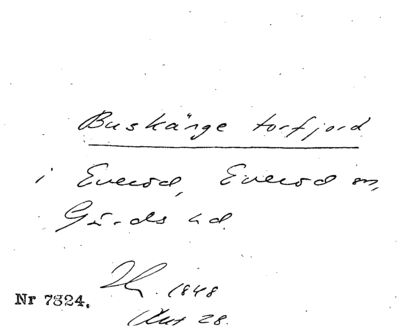 Buskänge torfjord
i Everöd, Everöd sn,
Gärds hd.
1848
Nr 7324.
28.